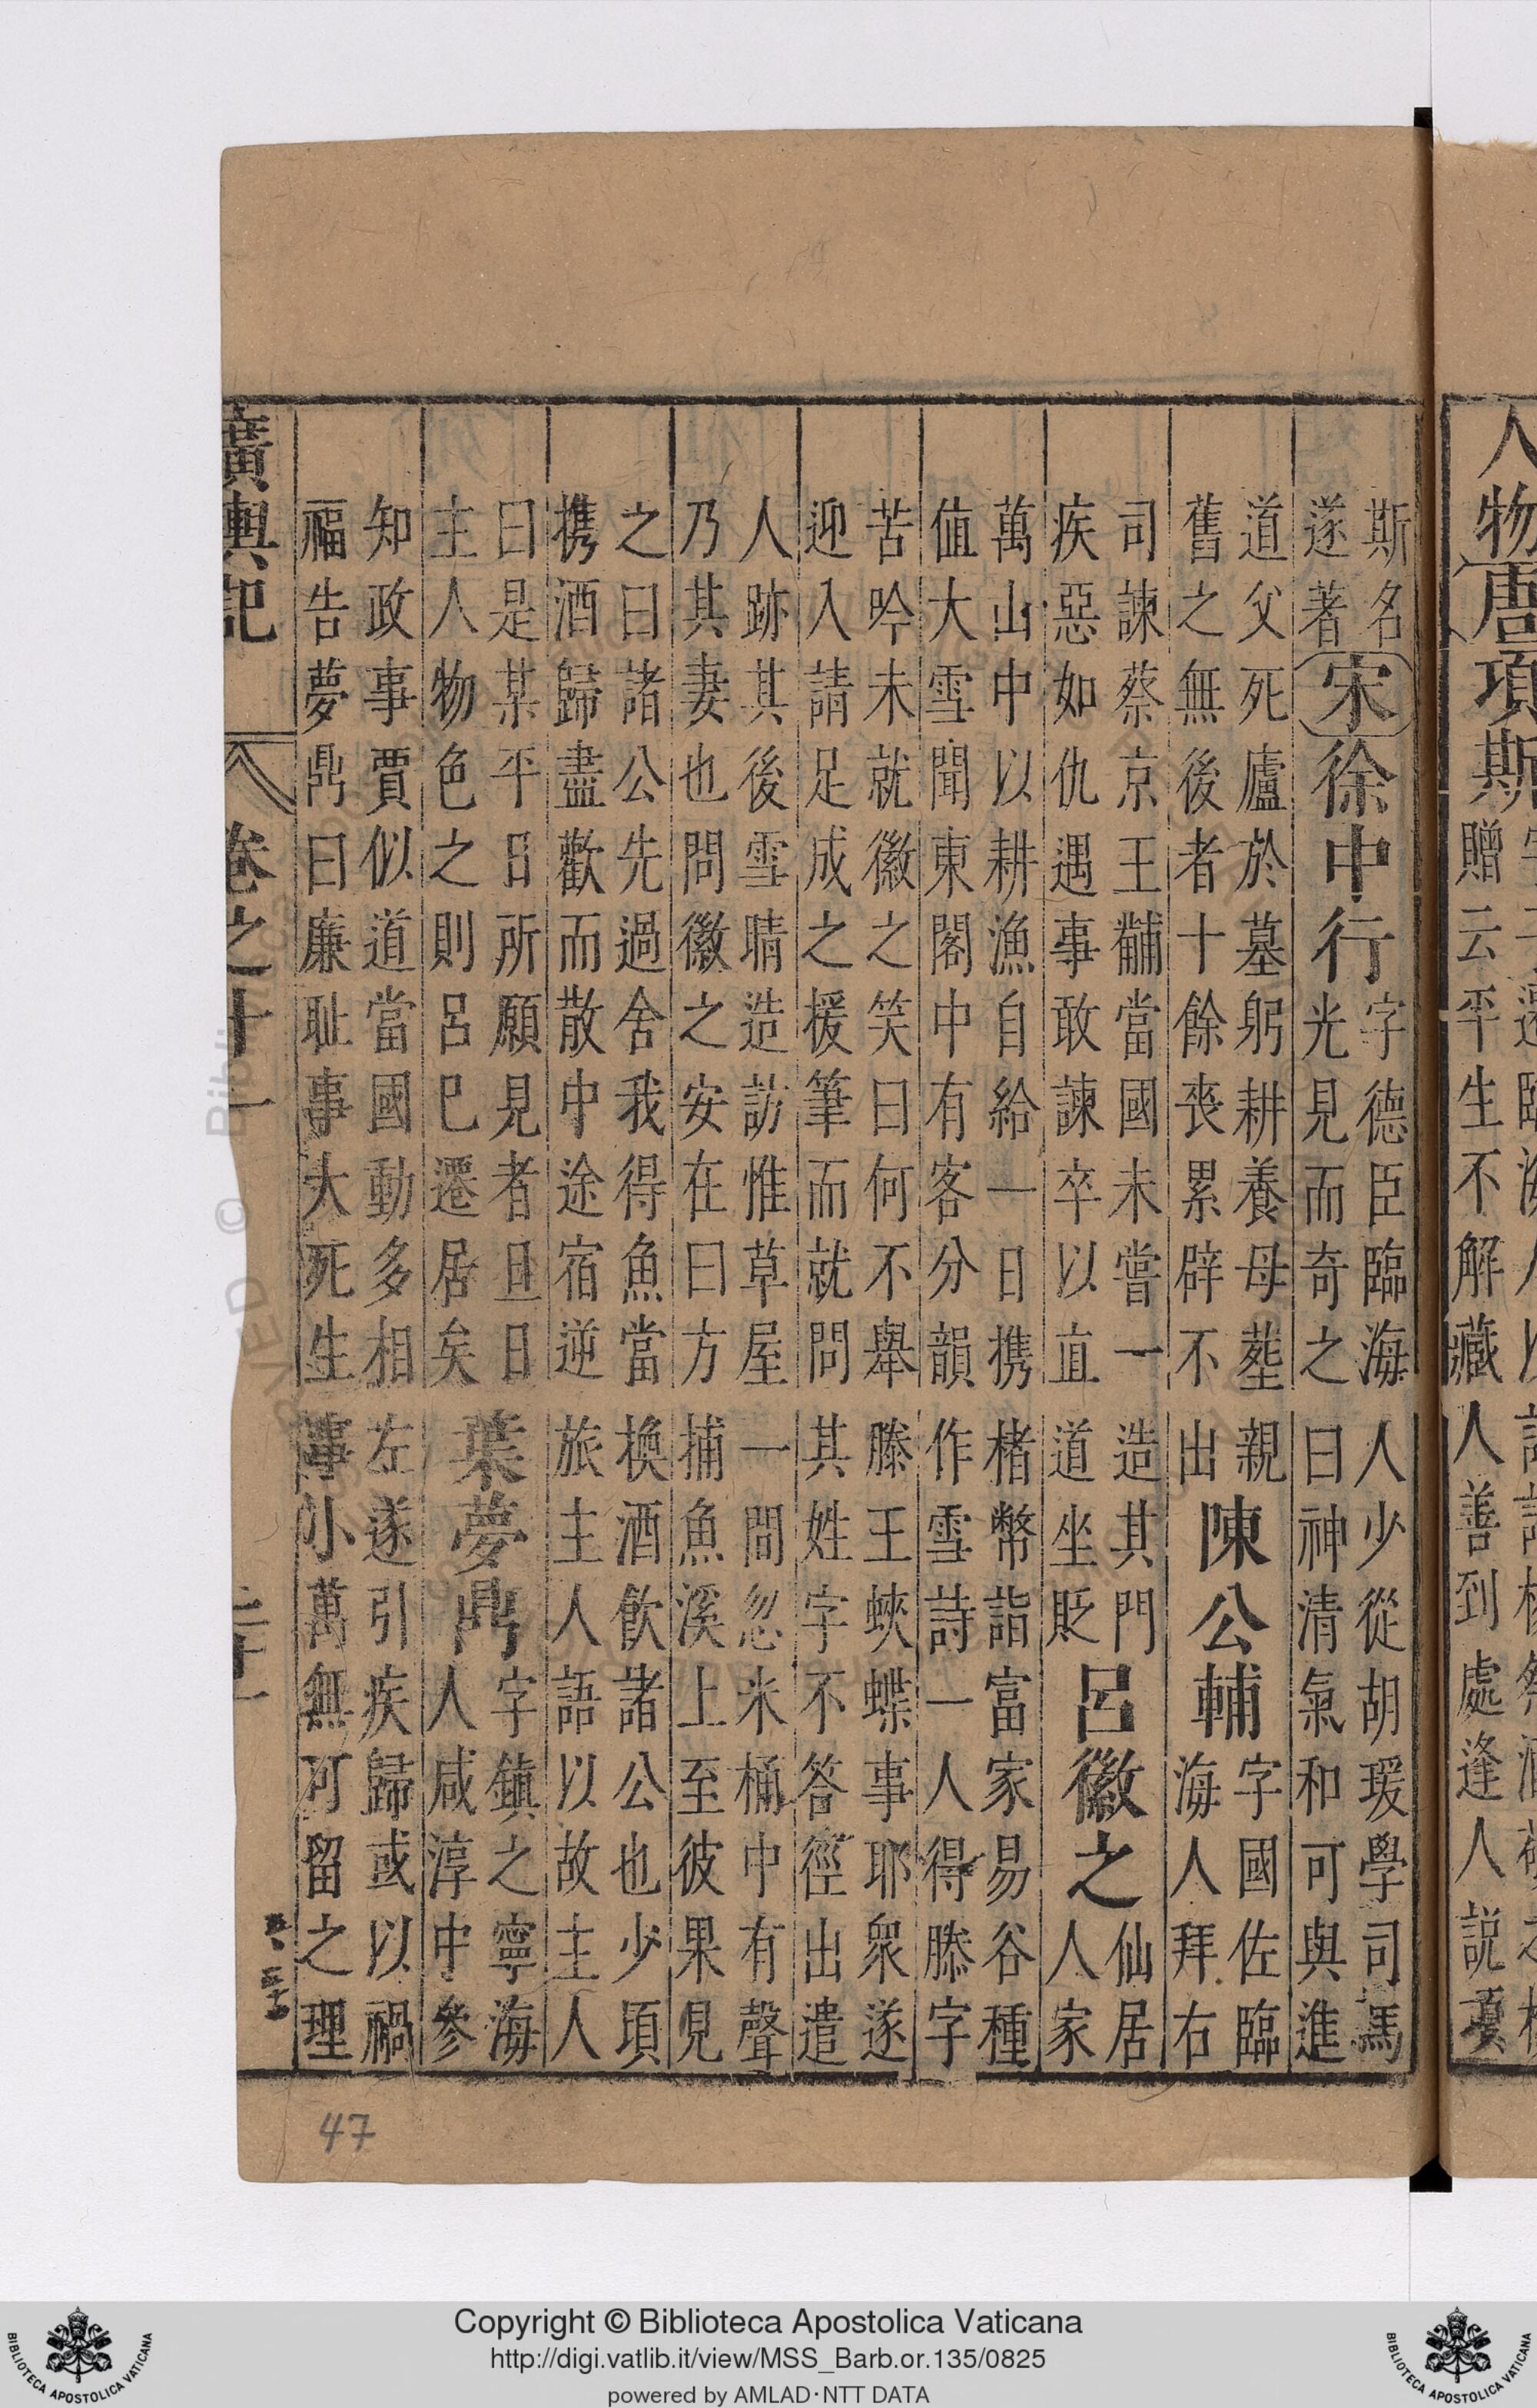 人物唐項斯
贈云平生不解藏人善到處逢人說項
斯名
遂著
宋徐中行
字德臣臨海人少從胡瑗學司馬
光見而奇之曰神清氣和可與進
道父死廬於墓躬耕養母塟親
舊之無後者十餘喪累辟不出
陳公輔
字國佐臨
海人拜右
司諫蔡京王黼當國未嘗一造其門
疾惡如仇遇事敢諫卒以直道坐貶
呂徽之
仙居
人家
萬山中以耕漁自給一日携楮幣詣富家易谷種
值大雪聞東閣中有客分韻作雪詩一人得滕字
苦吟未就徽之笑曰何不舉滕王蛺蝶事耶衆遂
迎入請足成之援筆而就問其姓字不答徑出遣
人跡其後雪晴造訪惟草屋一間忽米桶中有聲
乃其妻也問徽之安在曰方捕魚溪上至彼果見
之曰諸公先過舍我得魚當換酒飲諸公也少頃
携酒歸盡歡而散中途宿逆旅主人語以故主人
曰是某平日所願見者旦日
主人物色之則呂已遷居矣
葉夢鼎
字鎮之寧海
人咸淳中參
知政事賈似道當國動多相左遂引疾歸或以禍
福告夢鼎曰廉耻事大死生事小萬無可留之理
廣輿記 卷之十一
47
Copyright © Biblioteca Apostolica Vaticana
http://digi.vatlib.it/view/MSS_Barb.or.135/0825
powered by AMLAD·NTT DATA
BIBLIOTECA APOSTOLICA VATICANA
BIBLIOTECA APOSTOLICA VATICANA